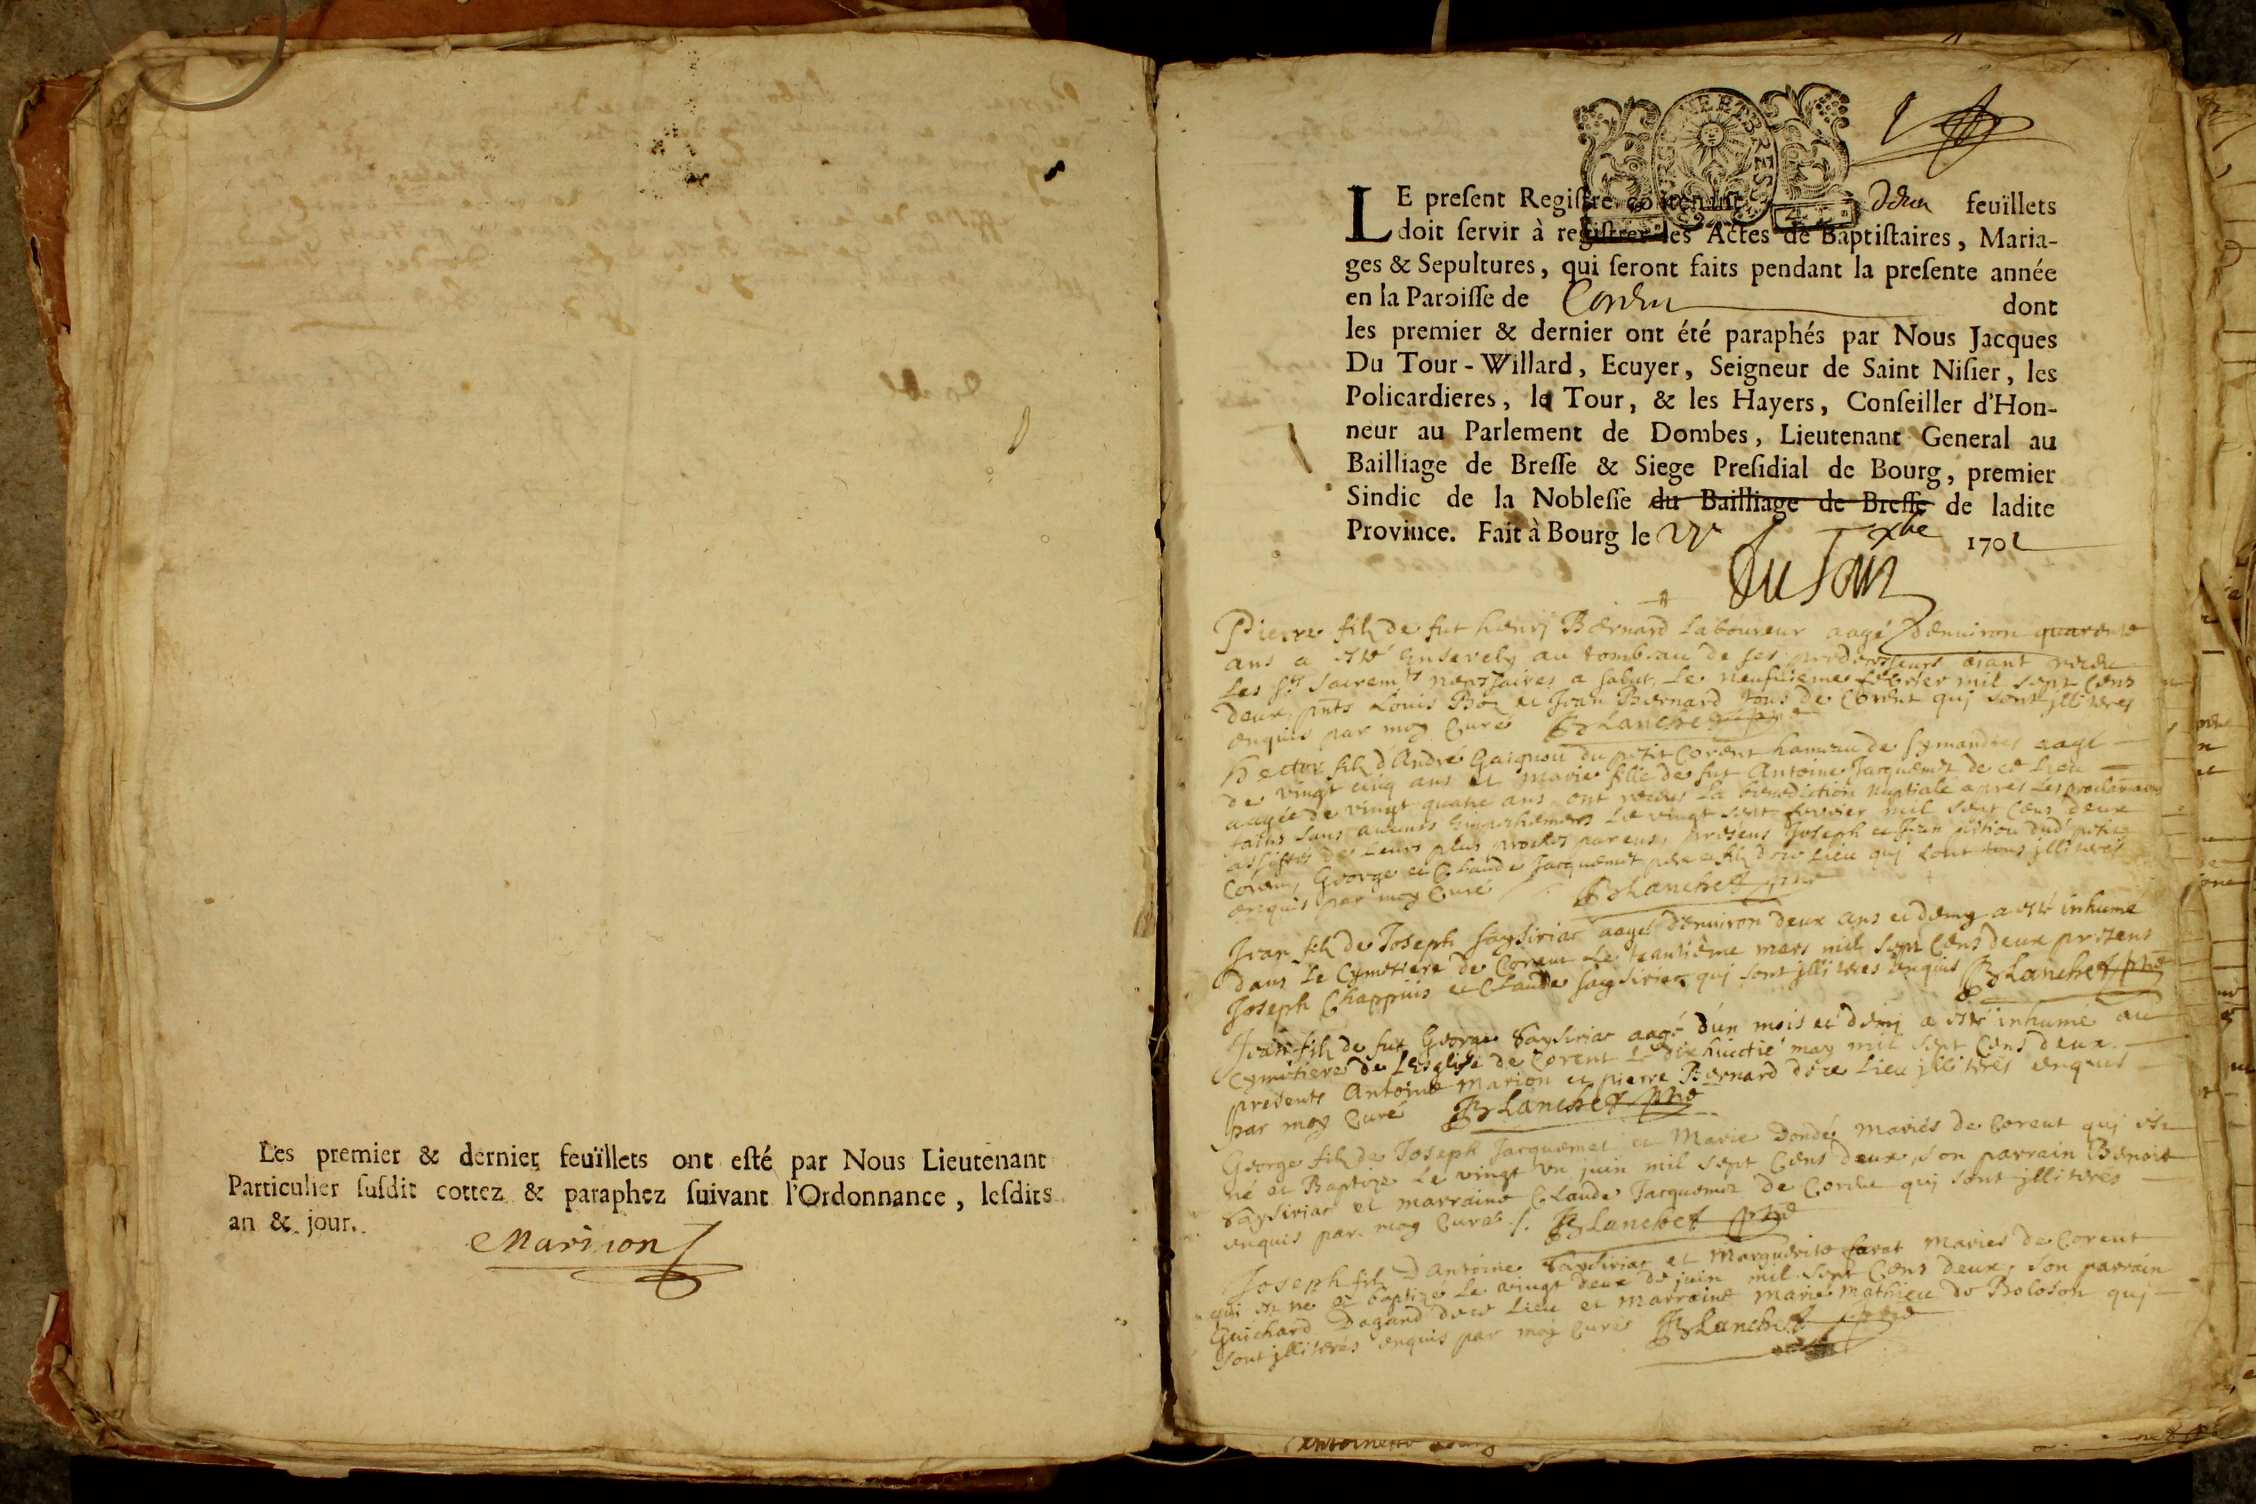 Les premier & dernier feuïllets ont eſté par Nous Lieutenant
Particulier ſuſdit cottez & paraphez ſuivant l'Ordonnance, leſdits
an & jour.
Marion
LE preſent Regiſtre contenant deux feuïllets
doit ſervir à regiſtrer les Actes de Baptiſtaires, Maria-
ges & Sepultures, qui ſeront faits pendant la preſente année
en la Paroiſſe de Coren dont
les premier & dernier ont été paraphés par Nous Jacques
Du Tour-Willard, Ecuyer, Seigneur de Saint Niſier, les
Policardieres, le Tour, & les Hayers, Conſeiller d'Hon-
neur au Parlement de Dombes, Lieutenant General au
Bailliage de Breſſe & Siege Preſidial de Bourg, premier
Sindic de la Nobleſſe du Bailliage de Breſſe de ladite
Province. Fait à Bourg le xbre 170
Du Tour
Pierre fils de fut henrj Bernard Laboureur aagé denuiron quarente
ans a esté enseuely au tombeau de ses predecesseurs aiant receu
Les sts sacremts necessaires a salut, Le neufuieme febvrier mil sept Cens
deux, pnts Louis Boz et Jean Bernard tous de Corent quj sont jlliteres
enquis par moy Curé Blanchet ptre
hector fils d'André Gaignou du petit Corent hameau de symandres aagé
de vingt cinq ans et Marie fille de fut Antoine Jacquemet de ce Lieu
aagée de vingt quatre ans ont receus La benediction nuptiale apres Les proclamaons
faites sans aucuns empechemens Le vingt sept fevrier mil sept Cens deux
assistés de Leurs plus proches parens, presens Joseph et Jean pition dud petit
Corent, George et Claude Jacquemet pere et fils de ce Lieu quj sont tous jlliterés
enquis par moy Curé Blanchet ptre
Jean fils de Joseph saysiriac aagé denuiron deux ans et demy a esté inhumé
dans Le Cymetiere de Corent Le trantième mars mil sept Cens deux presens
Joseph Chappuis et Claude saysiriac quj sont jlliteres enquis Blanchet ptre
Jean fils de fut George saysiriac aagé d'un mois et demj a esté inhumé au
Cymetiere de L'esglise de Corent Le dix huictie may mil sept Cens deux
presents Antoine Marion et pierre Bernard de ce Lieu jlliterés enquis
par moy Curé Blanchet ptre
George fils de Joseph Jacquemet et Marie Dondé mariés de Corent quj est
né et Baptizé Le vingt vn juin mil sept Cens deux, son parrain Benoit
saysiriac et marraine Claude Jacquemet de Coren quj sont jlliterés
enquis par moy Curé Blanchet ptre
Joseph fils D'antoine saysiriac et Marguerite farat Mariés de Corent
qui est né et baptizé Le vingt deux de juin mil sept Cens deux, son parrain
Guichard Dagand de ce Lieu et Marraine Marie Mathieu de Boloson quj
sont jlliterés enquis par moy Curé Blanchet ptre